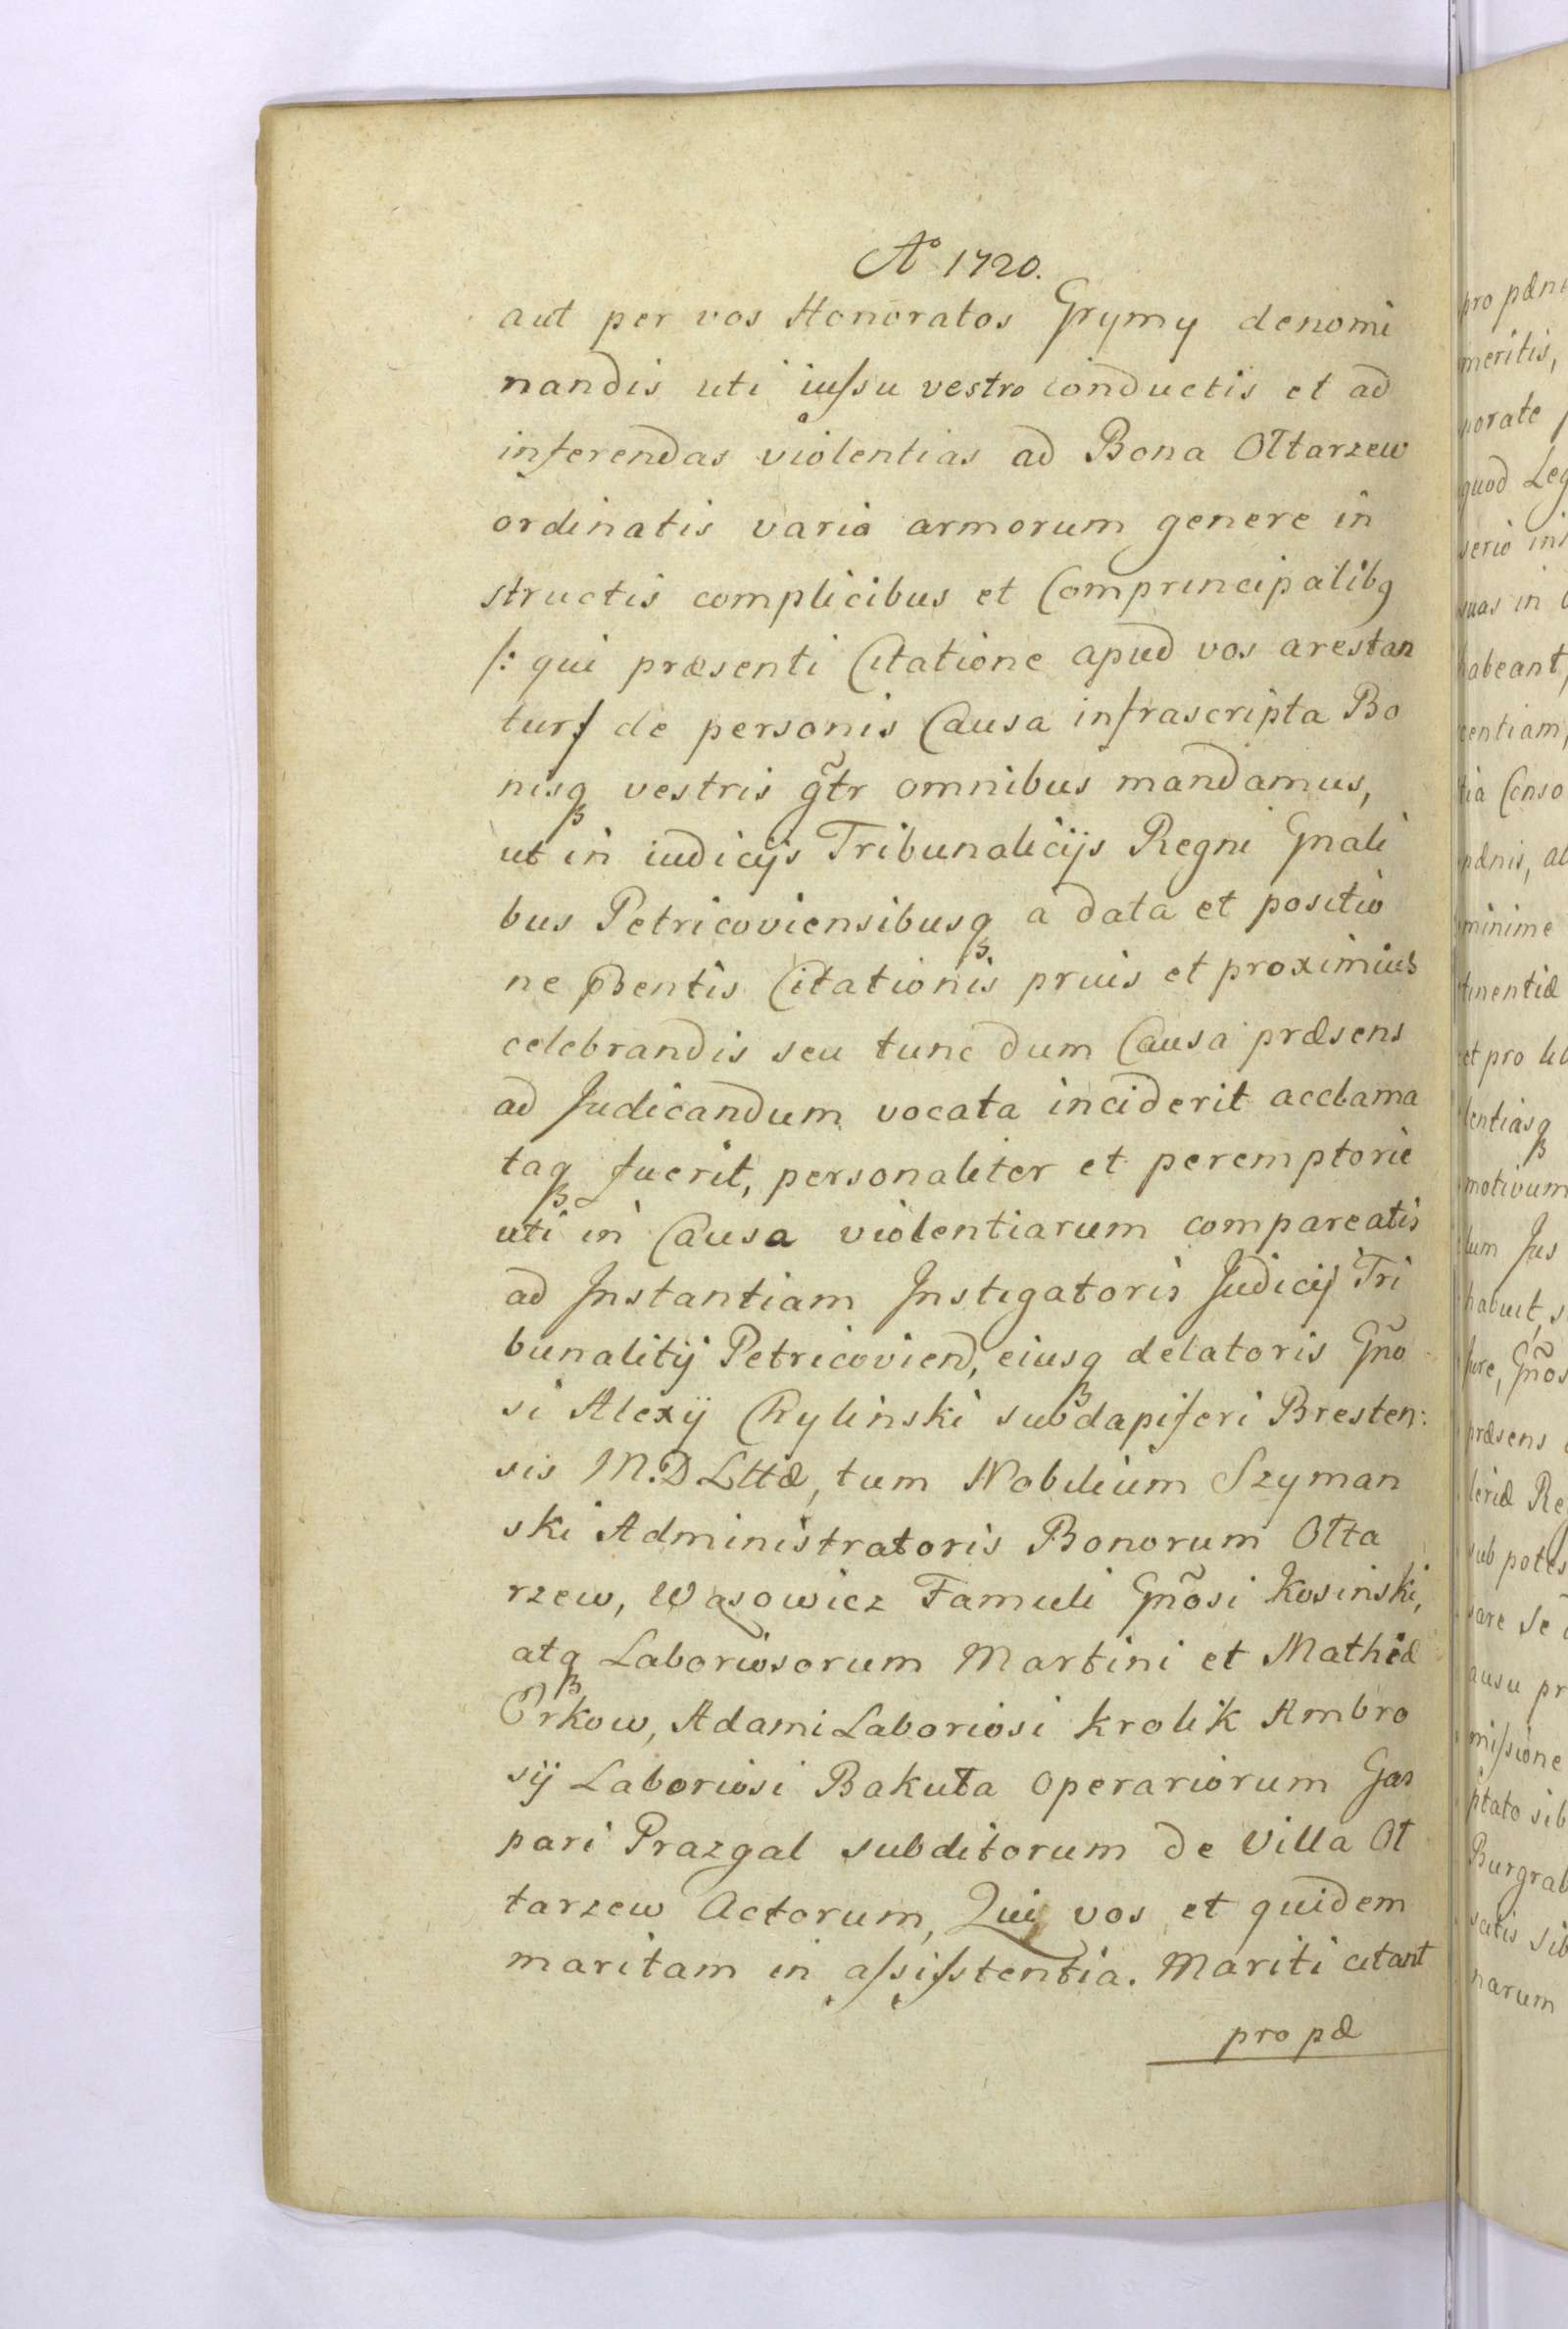 Aº 1720.
aut per vos Honoratos Grymy denomi
nandis uti iuſsu vestro conductis et ad
inferendas violentias ad Bona Ołtarzew
ordinatis vario armorum genere in
structis complicibus et Comprincipalibq
/: qui præsenti Citatione apud vos arestan
tur/ de personis Causa infrascripta Bo
nisq vestris gtr̃ omnibus mandamus,
ut in iudicijs Tribunalicijs Regni Gnali
bus Petricoviensibusq a data et positio
ne pſentis Citationis prius et proximius
celebrandis seu tunc dum Causa præsens
ad Judicandum vocata inciderit acclama
taq fuerit, personaliter et peremptorie
uti in Causa violentiarum compareatis
ad Jnstantiam Jnstigatoris Judicij Tri
bunalitij Petricovien, eiusq delatoris Gño
si Alexij Chylinski subdapiferi Bresten:
sis M.D Lttæ, tum Nobilium Szyman
ski Administratoris Bonorum Ołta
rzew, Wąsowicz Famuli Gñosi Kosinski,
atq Laboriosorum Martini et Mathiæ
Pirkow, Adami Laboriosi Krolik Ambro
sij Laboriosi Bakuła Operariorum Gas
pari Prazgal subditorum de Villa Oł
tarzew Actorum, Qui vos et quidem
maritam in aſsiſstentia. Mariti citant
pro pæ
pro pæn
meritis,
porate
quod Leg
serio in
suas in
habeant,
centiam,
tia Conso
pænis, al
minime
tinentiæ
et pro li
lentiasq
motivum
lum Jus
habuit, s
Jure, Gños
præsens
leriæ Re
sub potes
sare se
ausu pr
miſsione
ptato sib
Burgrab
satis sib
narum